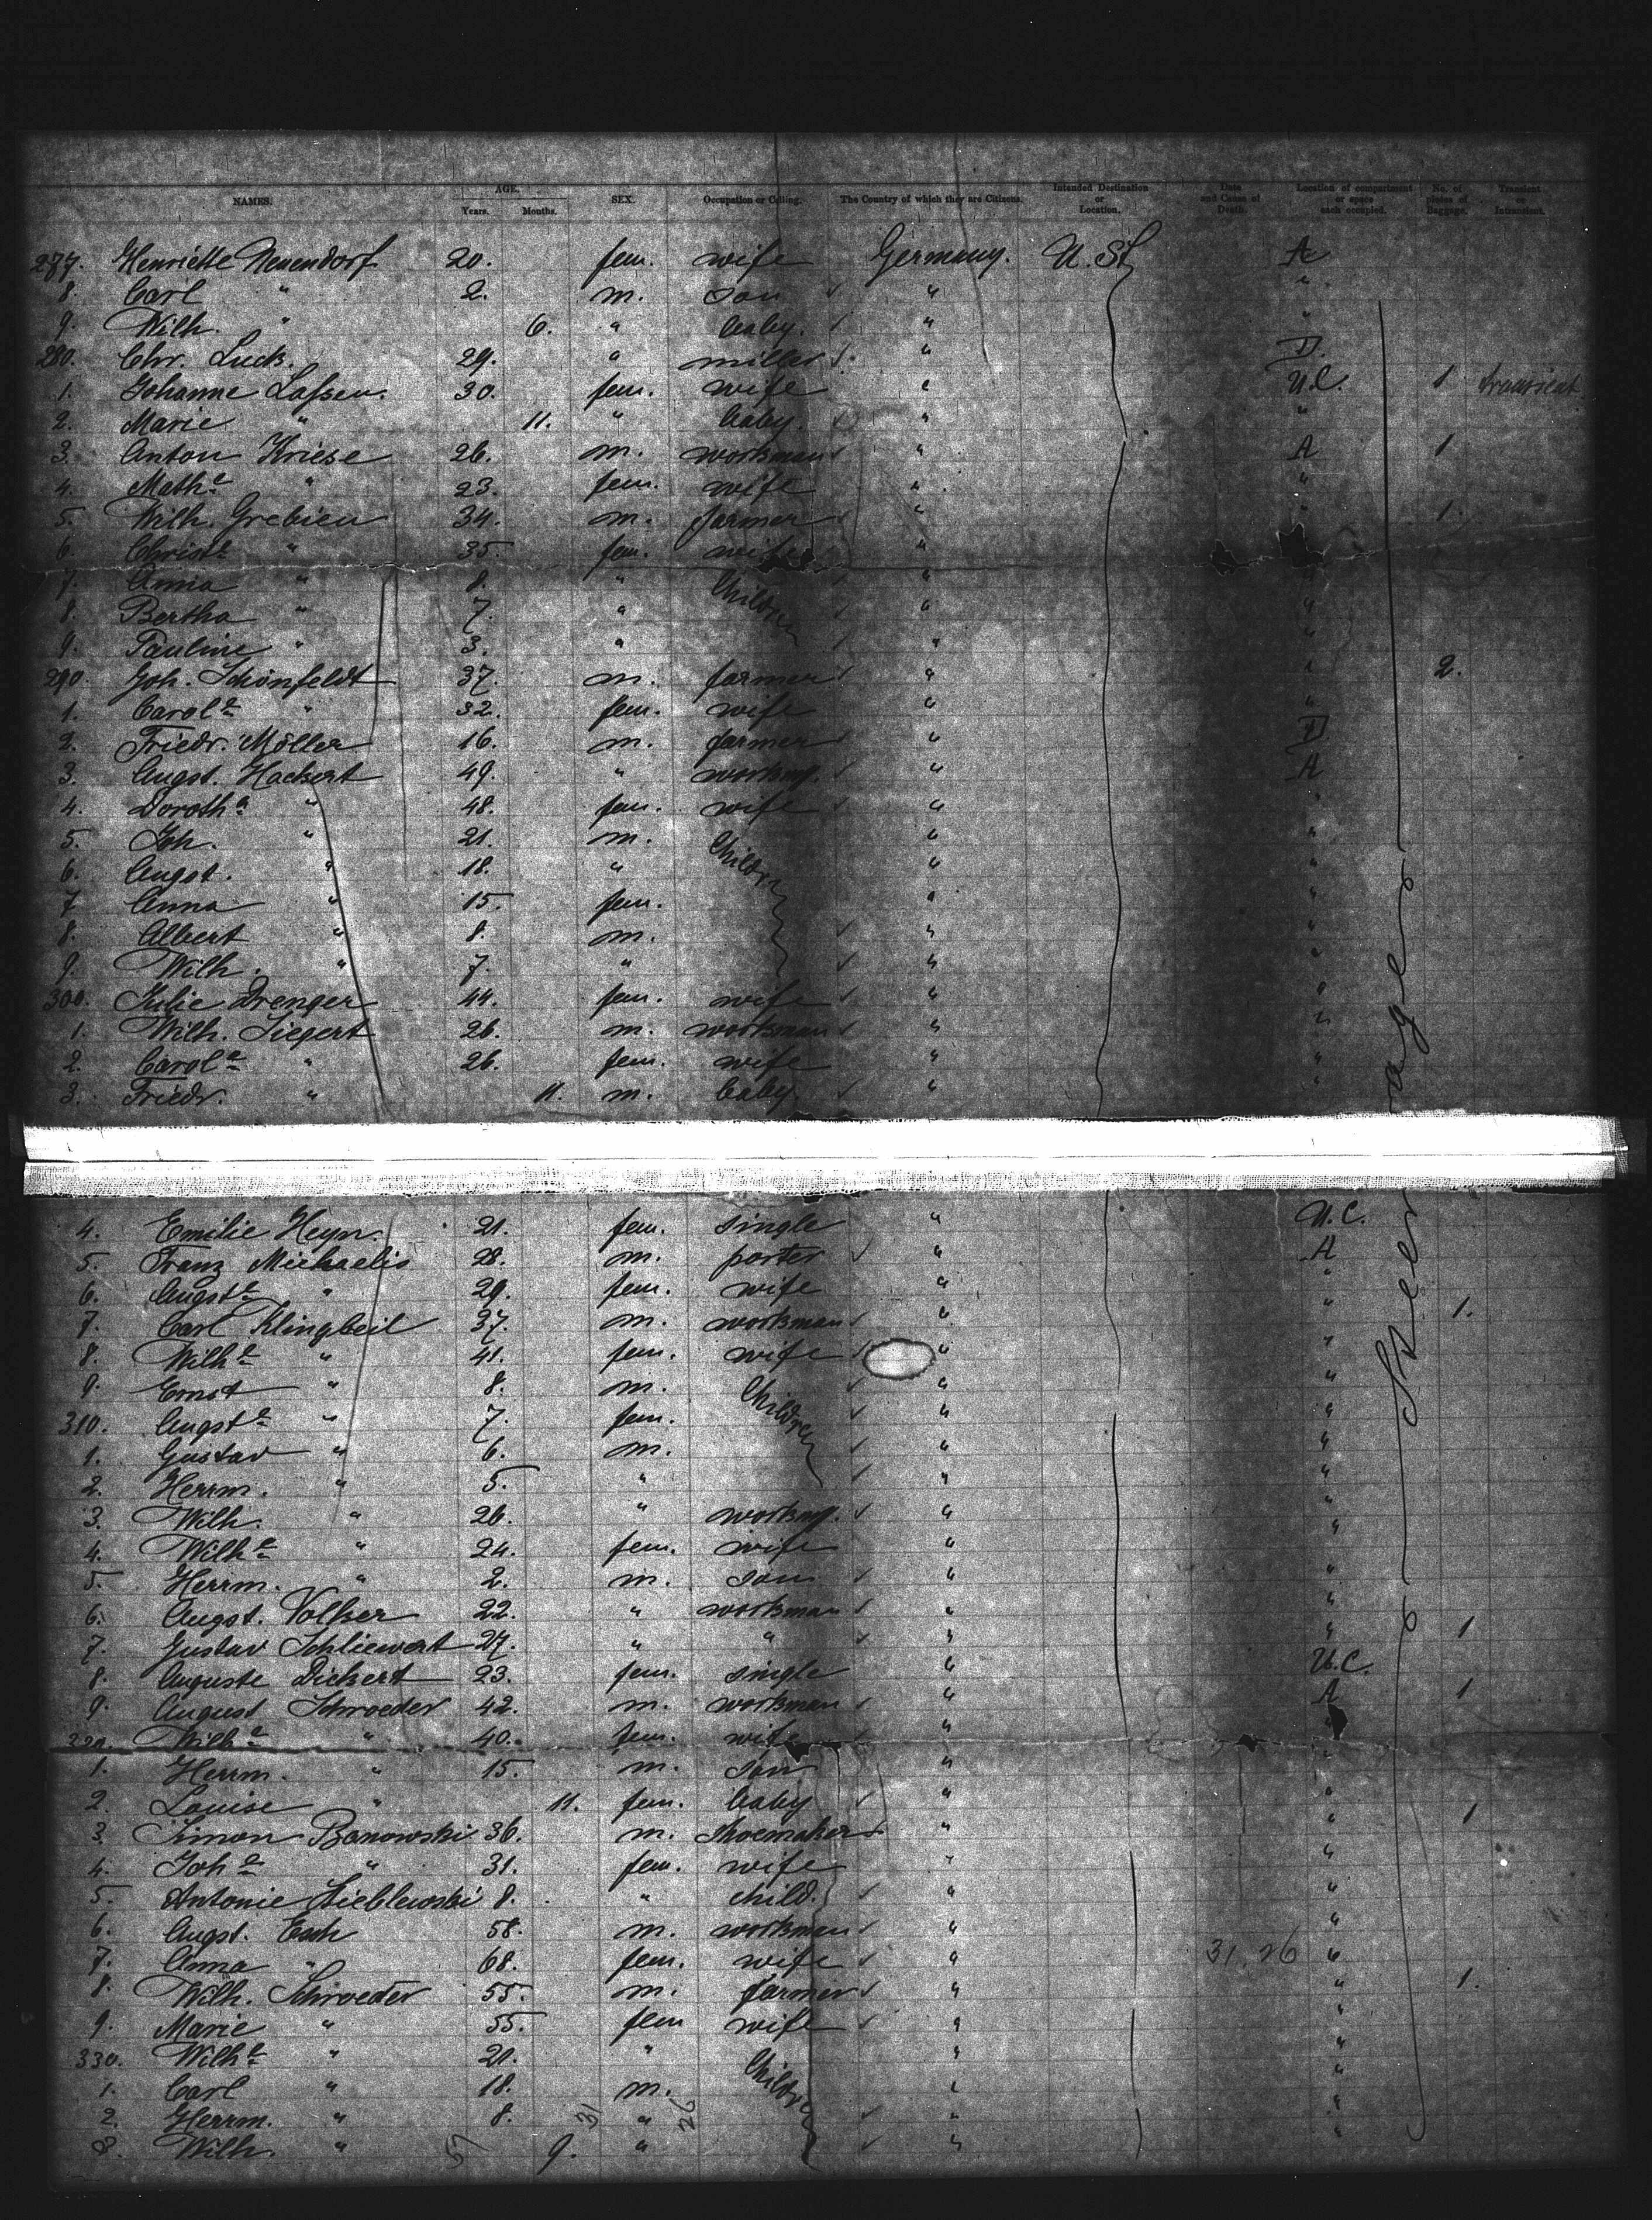 NAMES. AGE. Years. Months. SEX. Occupation or Calling. The Country of which they are Citizens. Intended Destination or Location. Date and Cause of Death. Location of compartment or space each occupied. No. of pieces of Baggage. Transient or Intransient.
277. Henriette Neuendorf 20. fem. wife Germany. U. St. A
8. Carl " 2. m. son " "
9. Wilh. " 6. " baby. " "
280. Chr. Luck. 29. " miller " D.
1. Johanne Lassen. 30. fem. wife " U.C. 1 transient
2. Marie " 11. " baby. " "
3. Anton Kriese 26. m. workman " A 1
4. Mathe " 23. fem. wife " "
5. Wilh. Grebien 34. m. farmer " " 1.
6. Christe " 35. fem. wife "
7. Anna " 8. " Children " "
8. Bertha " 7. " " "
9. Pauline " 3. " " "
290. Joh. Schönfeldt 37. m. farmer " " 2.
1. Carole " 32. fem. wife " "
2. Friedr. Möller 16. m. farmer " D
3. Augst. Hackert 49. " workmg. " A
4. Dorotha " 48. fem. wife " "
5. Joh. " 21. m. Children " "
6. Augst. " 18. " " "
7. Anna " 15. fem. " "
8. Albert " 8. m. " "
9. Wilh. " 7. " " "
300. Julie Drenger 44. fem. wife " "
1. Wilh. Siegert 26. m. workman " "
2. Carole " 26. fem. wife " "
3. Friedr. " 11. m. baby. " "
Steerage
4. Emilie Heyn. 21. fem. single " U.C.
5. Franz Michaelis 28. m. porter " A
6. Augste " 29. fem. wife " "
7. Carl Klingbeil 37. m. workman " " 1.
8. Wilhe " 41. fem. wife " "
9. Ernst " 8. m. Children " "
310. Augste " 7. fem. " "
1. Gustav " 6. m. " "
2. Herrm. " 5. " " "
3. Wilh. " 26. " workmg. " "
4. Wilhe " 24. fem. wife " "
5. Herrm. " 2. m. son " "
6. Augst. Volker 22. " workman " "
7. Gustav Schliewert 27. " " " " 1
8. Auguste Dickert 23. fem. single " U.C.
9. August Schroeder 42. m. workman " A 1
320. Wilhe " 40. fem. wife " "
1. Herrm. " 15. m. son " "
2. Louise " 11. fem. baby " "
3. Simon Banowski 36. m. shoemaker " " 1
4. Johe " 31. fem. wife " "
5. Antonie 8. " child. " "
6. Augst. Esch 58. m. workman " "
7. Anna " 68. fem. wife " 31.26 "
8. Wilh. Schroeder 55. m. farmer " " 1.
9. Marie " 55. fem wife " "
330. Wilhe " 21. " Children " "
1. Carl " 18. m. " "
2. Herrm. " 8. 31 " 26 " "
3. Wilh. " 9. " " "